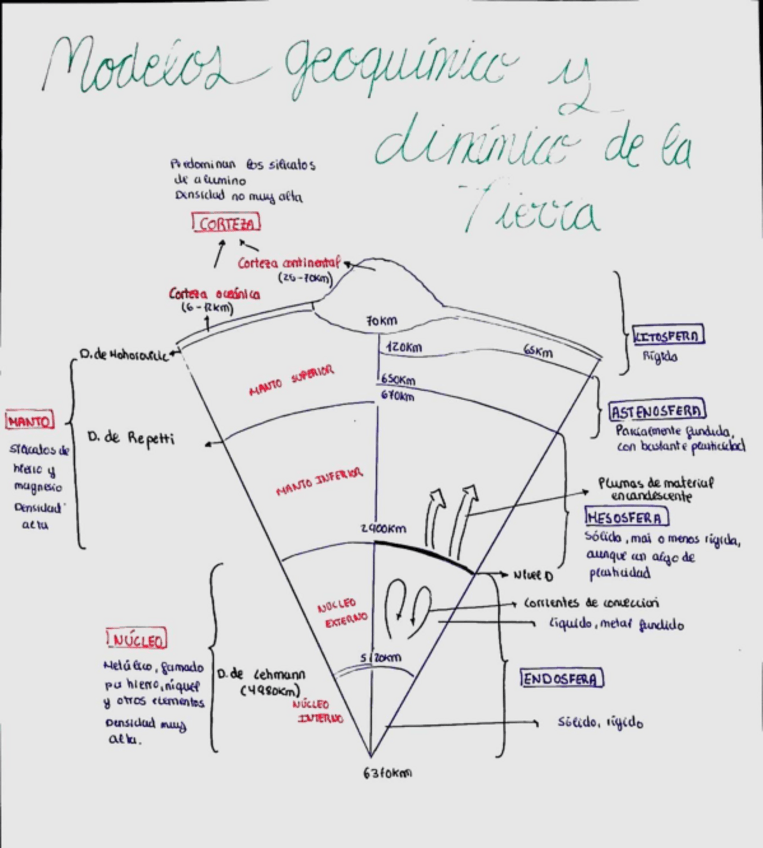 Modelos geoquímico y
dinámico de la
Tierra
Predominan los silicatos
de alumino
Densidad no muy alta
CORTEZA
Corteza continental
(25-70km)
Corteza oceánica
(6-12km)
70km
D. de Mohorovicic
120km
65km
LITOSFERA
Rígida
MANTO SUPERIOR
650km
670km
ASTENOSFERA
Parcialmente fundida,
con bastante plasticidad
MANTO
Silicatos de
hierro y
magnesio
Densidad
alta
D. de Repetti
MANTO INFERIOR
Plumas de material
encandescente
MESOSFERA
Sólido, mas o menos rígida,
aunque un algo de
plasticidad
2900km
Nivel D
NÚCLEO
EXTERNO
Corrientes de conveccion
Líquido, metal fundido
NÚCLEO
Metálico, formado
por hierro, niquel
y otros elementos
Densidad muy
alta.
5120km
D. de Lehmann
(4980km)
ENDOSFERA
NÚCLEO
INTERNO
Sólido, rígido
6370km